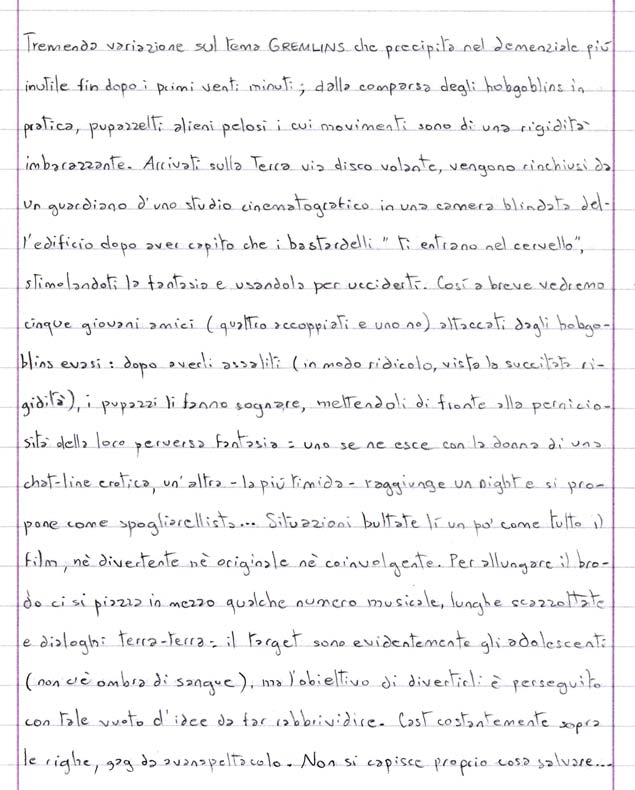 Tremenda variazione sul tema GREMLINS che precipita nel demenziale più
inutile fin dopo i primi venti minuti; dalla comparsa degli hobgoblins in
pratica, pupazzetti alieni pelosi i cui movimenti sono di una rigidità
imbarazzante. Arrivati sulla Terra via disco volante, vengono rinchiusi da
un guardiano d'uno studio cinematografico in una camera blindata del-
l'edificio dopo aver capito che i bastardelli "ti entrano nel cervello",
stimolandoti la fantasia e usandola per ucciderti. Così a breve vedremo
cinque giovani amici (quattro accoppiati e uno no) attaccati dagli hobgo-
blins evasi: dopo averli assaliti (in modo ridicolo, vista la succitata ri-
gidità), i pupazzi li fanno sognare, mettendoli di fronte alla pernicio-
sità della loro perversa fantasia: uno se ne esce con la donna di una
chat-line erotica, un'altra - la più timida - raggiunge un night e si pro-
pone come spogliarellista... Situazioni buttate lì un po' come tutto il
film, nè divertente nè originale nè coinvolgente. Per allungare il bro-
do ci si piazza in mezzo qualche numero musicale, lunghe scazzottate
e dialoghi terra-terra: il target sono evidentemente gli adolescenti
(non c'è ombra di sangue), ma l'obiettivo di divertirli è perseguito
con tale vuoto d'idee da far rabbrividire. Cast costantemente sopra
le righe, gag da avanspettacolo. Non si capisce proprio cosa salvare...